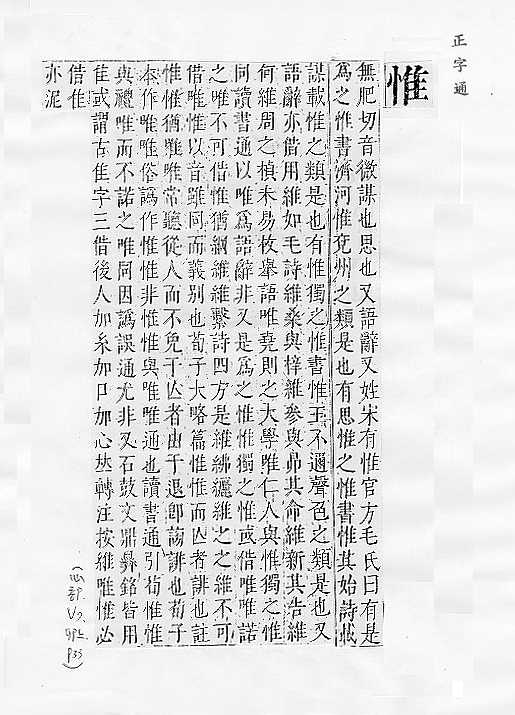 正字通
惟
無肥切音微謀也思也又語辭又姓宋有惟官方毛氏曰有是
爲之惟書濟河惟兖州之類是也有思惟之惟書惟其始詩載
謀載惟之類是也有惟獨之惟書惟王不邇聲色之類是也又
語辭亦借用維如毛詩維桑與梓維參與昴其命維新其告維
何維周之楨未易枚舉語唯堯則之大學唯仁人與惟獨之惟
同讀書通以唯爲語辭非又是爲之惟惟獨之惟或借唯唯諾
之唯不可借惟猶綱維維繫詩四方是維紼纚維之之維不可
借唯惟以音雖同而義别也荀子大略篇惟惟而亾者誹也註
惟惟猶唯唯常聽從人而不免于亾者由于退卽謗誹也荀子
本作唯唯俗譌作惟惟非惟惟與唯唯通也讀書通引荀惟惟
與禮唯而不諾之唯同因譌誤通尤非又石鼓文鼎彝銘皆用
隹或謂古隹字三借後人加糸加口加心𠀤轉注按維唯惟必
借隹
亦泥
(心部